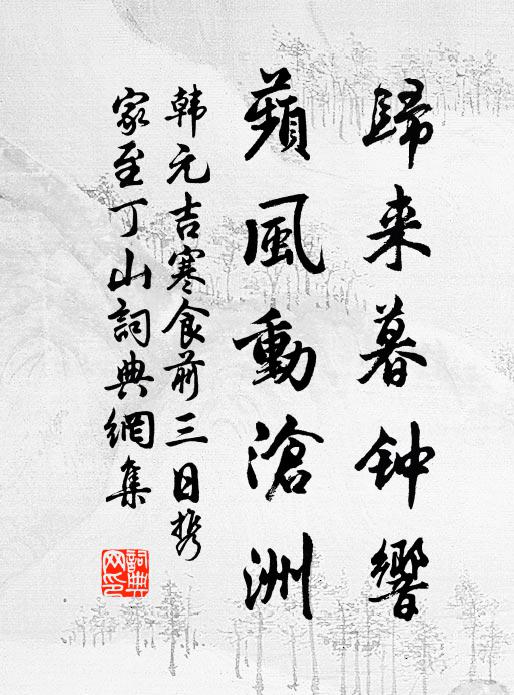 歸来暮钟響
蘋風動滄洲
韩元吉寒食前三日携
家至丁山詞典網集
詞典
网印